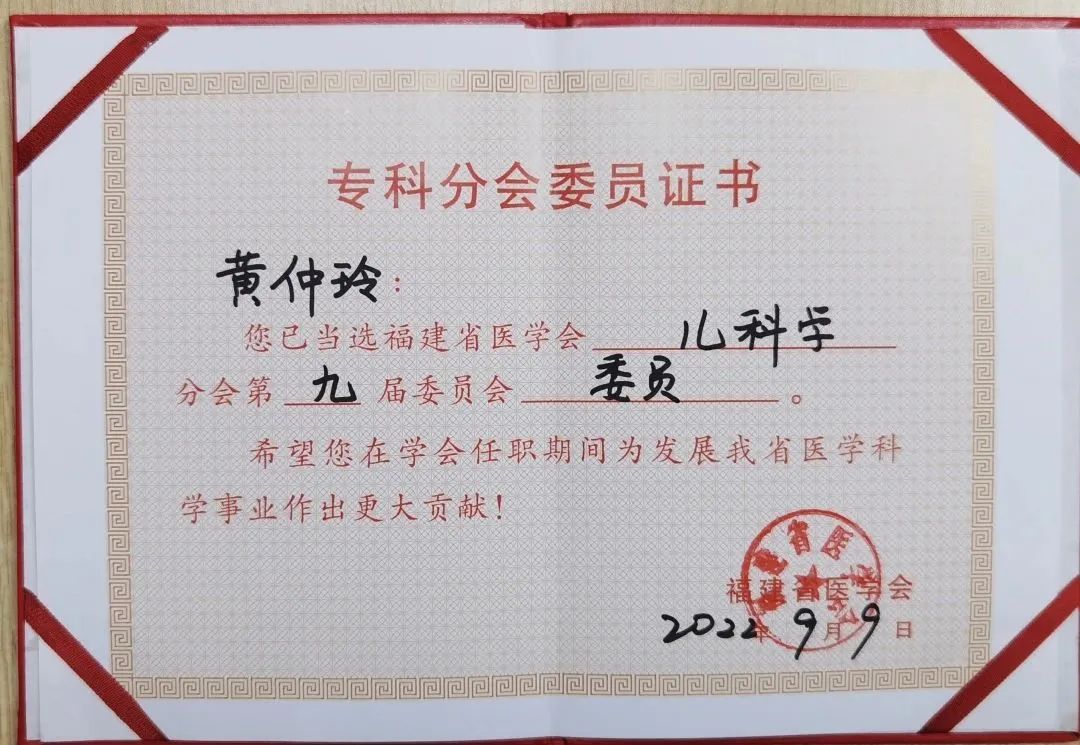 专科分会委员证书
黄仲玲：
您已当选福建省医学会 儿科学
分会第 九 届委员会 委员 。
希望您在学会任职期间为发展我省医学科
学事业作出更大贡献！
福建省医学会
福建省医学会
2022年9月9日